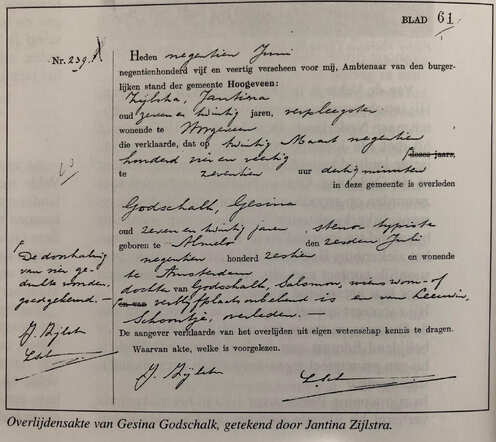 BLAD 61
Nr. 239
Heden negentien Juni
negentienhonderd vijf en veertig verscheen voor mij, Ambtenaar van den burger-
lijken stand der gemeente Hoogeveen:
Zijlstra, Jantina
oud zeven en twintig jaren, verpleegster
wonende te Hoogeveen
die verklaarde, dat op twintig Maart negentien
honderd vier en veertig dezes jaars,
te zeventien uur dertig minuten
in deze gemeente is overleden
Godschalk, Gesina
oud zeven en twintig jaren, steno-typiste
geboren te Almelo den zesden Juli
negentien honderd zestien en wonende
te Amsterdam
dochter van Godschalk, Salomon, wiens woon- of
en van verblijfplaats onbekend is en van Leeuwen,
Schoontje, overleden. —
De doorhaling
van vier ge-
drukte woorden,
goedgekeurd. —
J. Zijlstra
De aangever verklaarde van het overlijden uit eigen wetenschap kennis te dragen.
Waarvan akte, welke is voorgelezen.
J. Zijlstra
Overlijdensakte van Gesina Godschalk, getekend door Jantina Zijlstra.